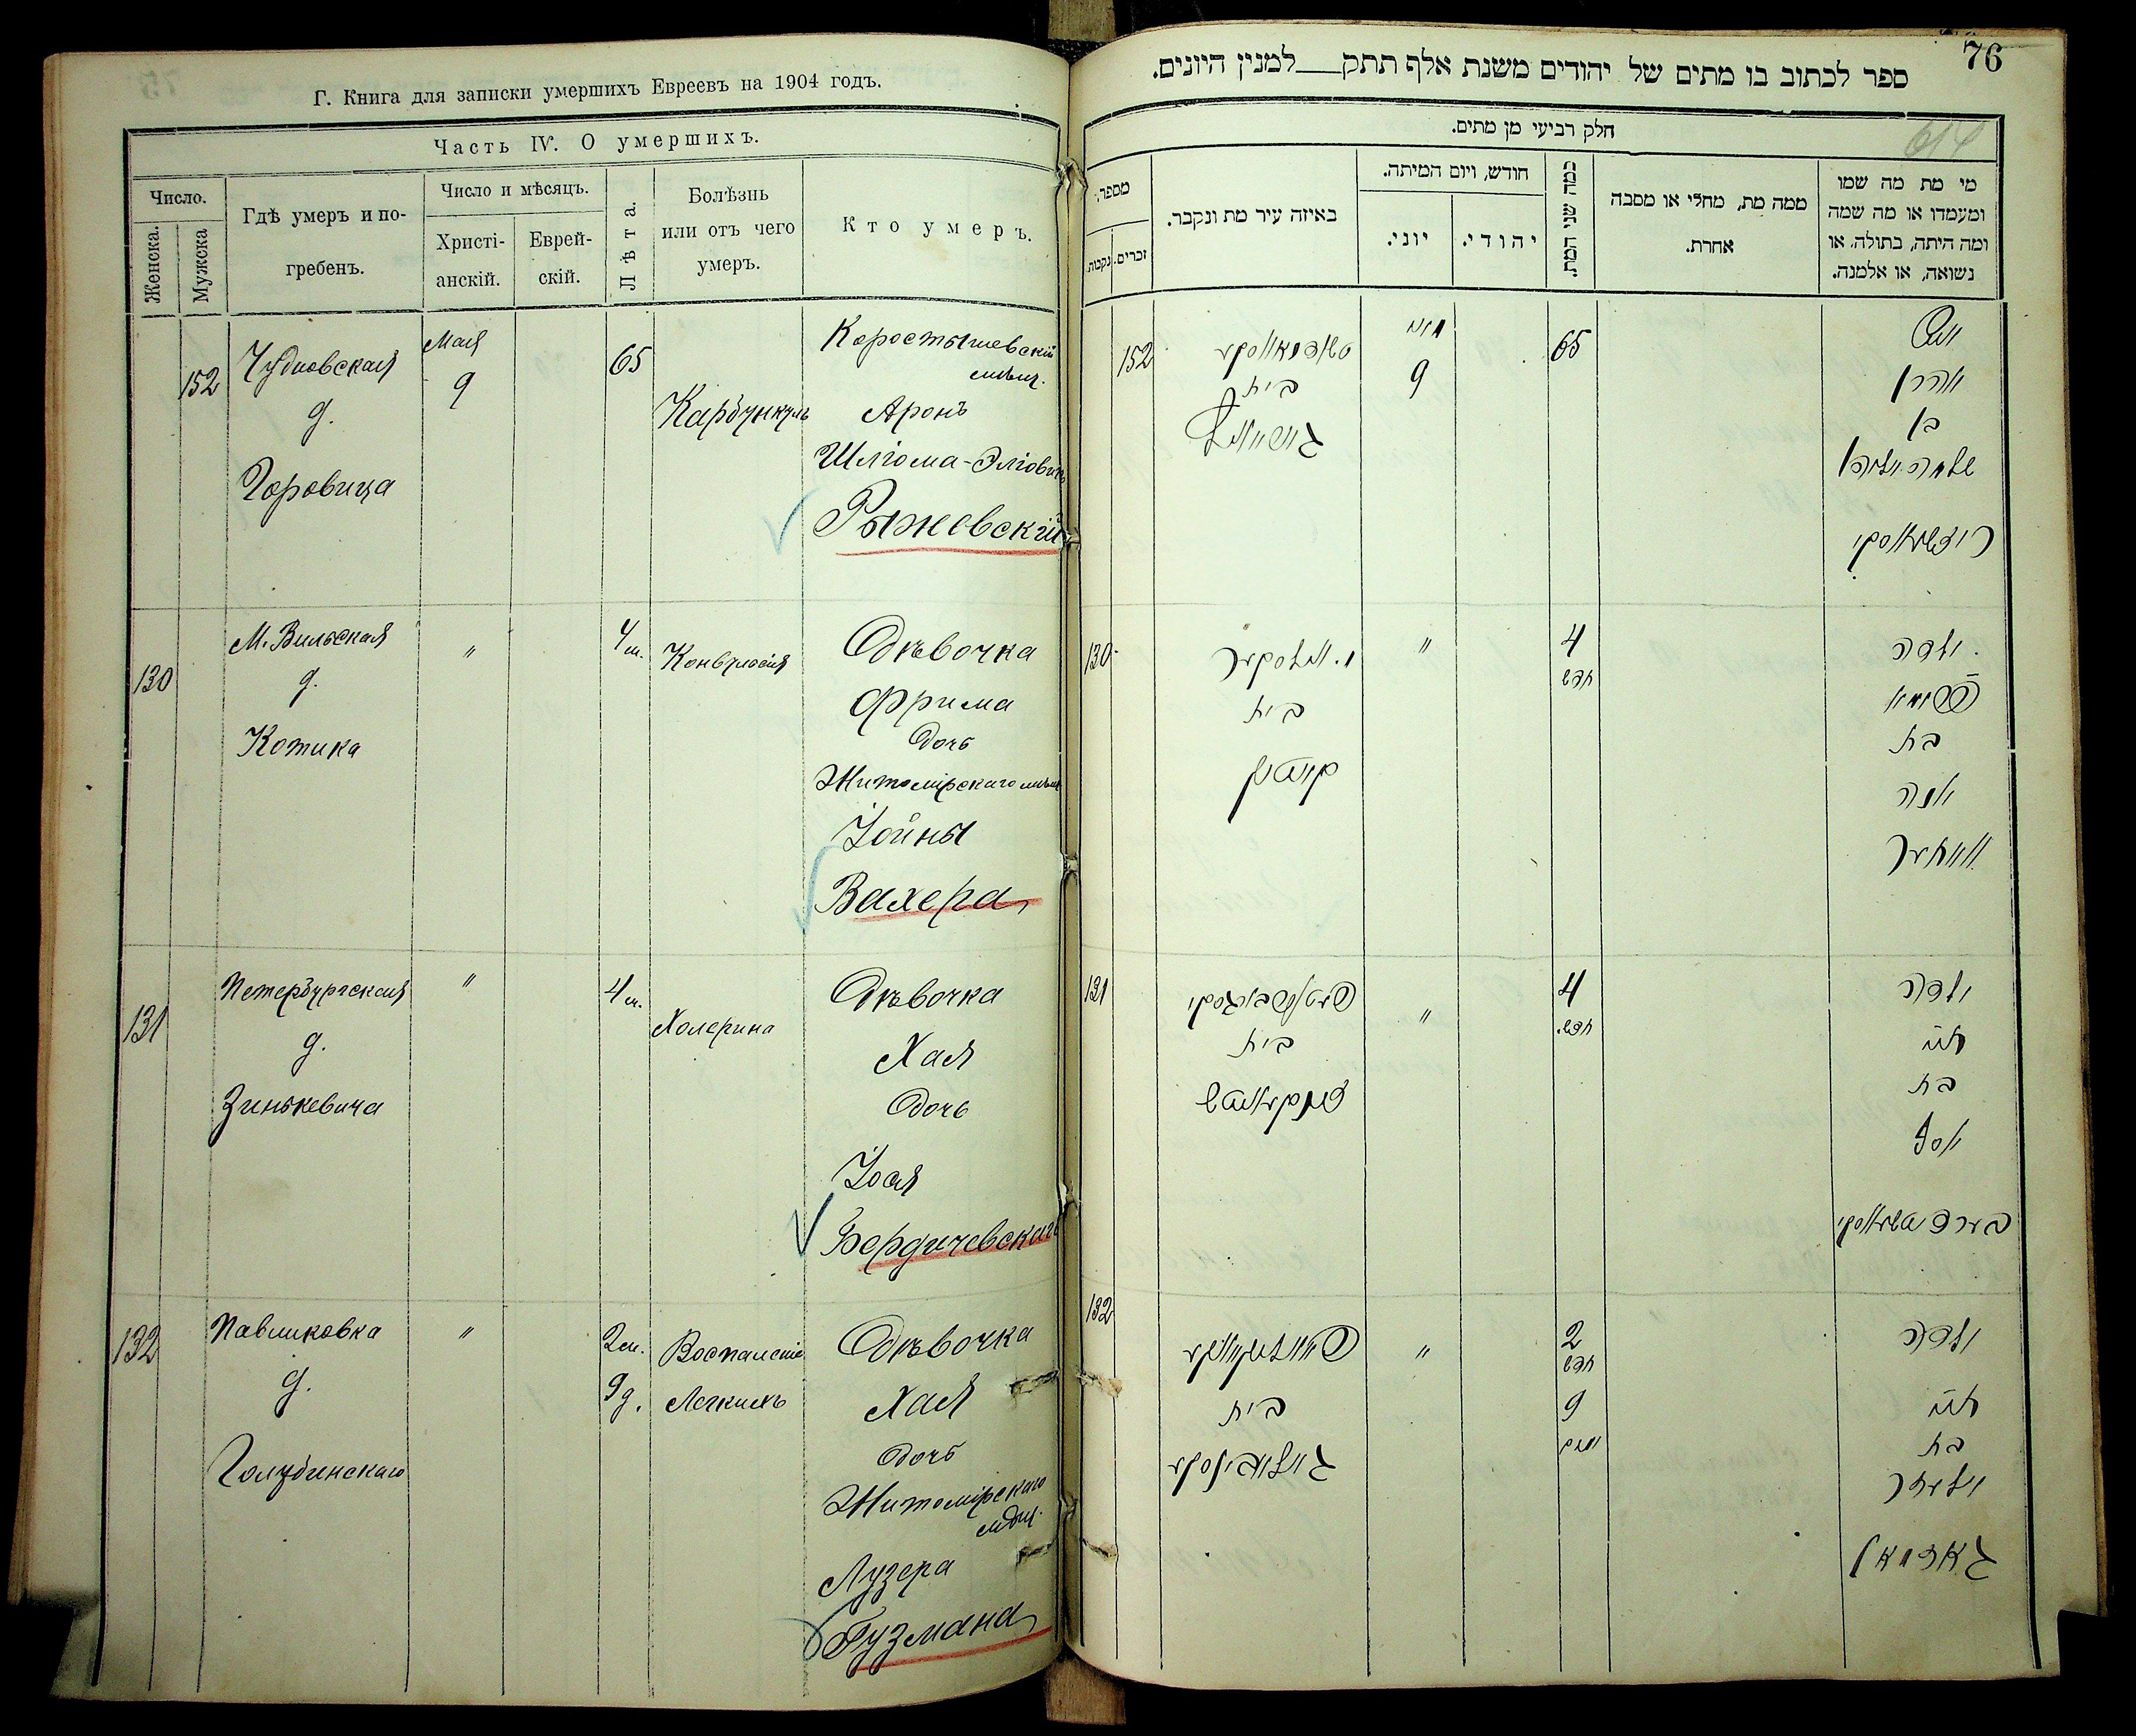 Г. Книга для записки умершихъ Евреевъ на 1904 годъ.
Часть IV. О умершихъ.
Число.
Женска.
Мужска
Гдѣ умеръ и по-
гребенъ.
Число и мѣсяцъ.
Христі-
анскій.
Еврей-
скій.
Лѣта.
Болѣзнь
или отъ чего
умеръ.
Кто умеръ.
152
Чудновская
д.
Горовица
Мая
9
65
Карбункулъ
Коростышевскій
мѣщ.
Аронъ
Шліома-Эліовичъ
Рыжевскій
130
М. Вильская
д.
Котика
"
4 м.
Конвульсія
Дѣвочка
Фрима
дочь
Житомірскаго мѣщ
Іойны
Вахера
131
Петербургская
д.
Зинькевича
"
4 м.
Холерина
Дѣвочка
Хая
дочь
Іося
Бердичевскаго
132
Павликовка
д.
Голубинскаго
"
2 м.
9 д.
Воспаленіе
Легкихъ
Дѣвочка
Хая
дочь
Житомірскаго
мѣщ.
Лузера
Гузмана
76
ספר לכתוב בו מתים של יהודים משנת אלף תתק למנין היונים.
חלק רביעי מן מתים.
מספר.
נקבות
זכרים.
באיזה עיר מת ונקבר.
חודש, ויום המיתה.
יוני.
יהודי.
כמה שני המת.
ממה מת, מחלי או מסבה
אחרת.
מי מת מה שמו
ומעמדו או מה שמה
ומה היתה, בתולה, או
נשואה, או אלמנה.
152
בית
מאי
9
65
איש
אהרן
בן
130
בית
"
4
חדש
ילדה
פרימא
בת
יונה
וואחער
131
בית
"
4
חדש.
ילדה
חיה
בת
יוסף
132
בית
"
2
חדש
9
ימים
ילדה
חיה
בת